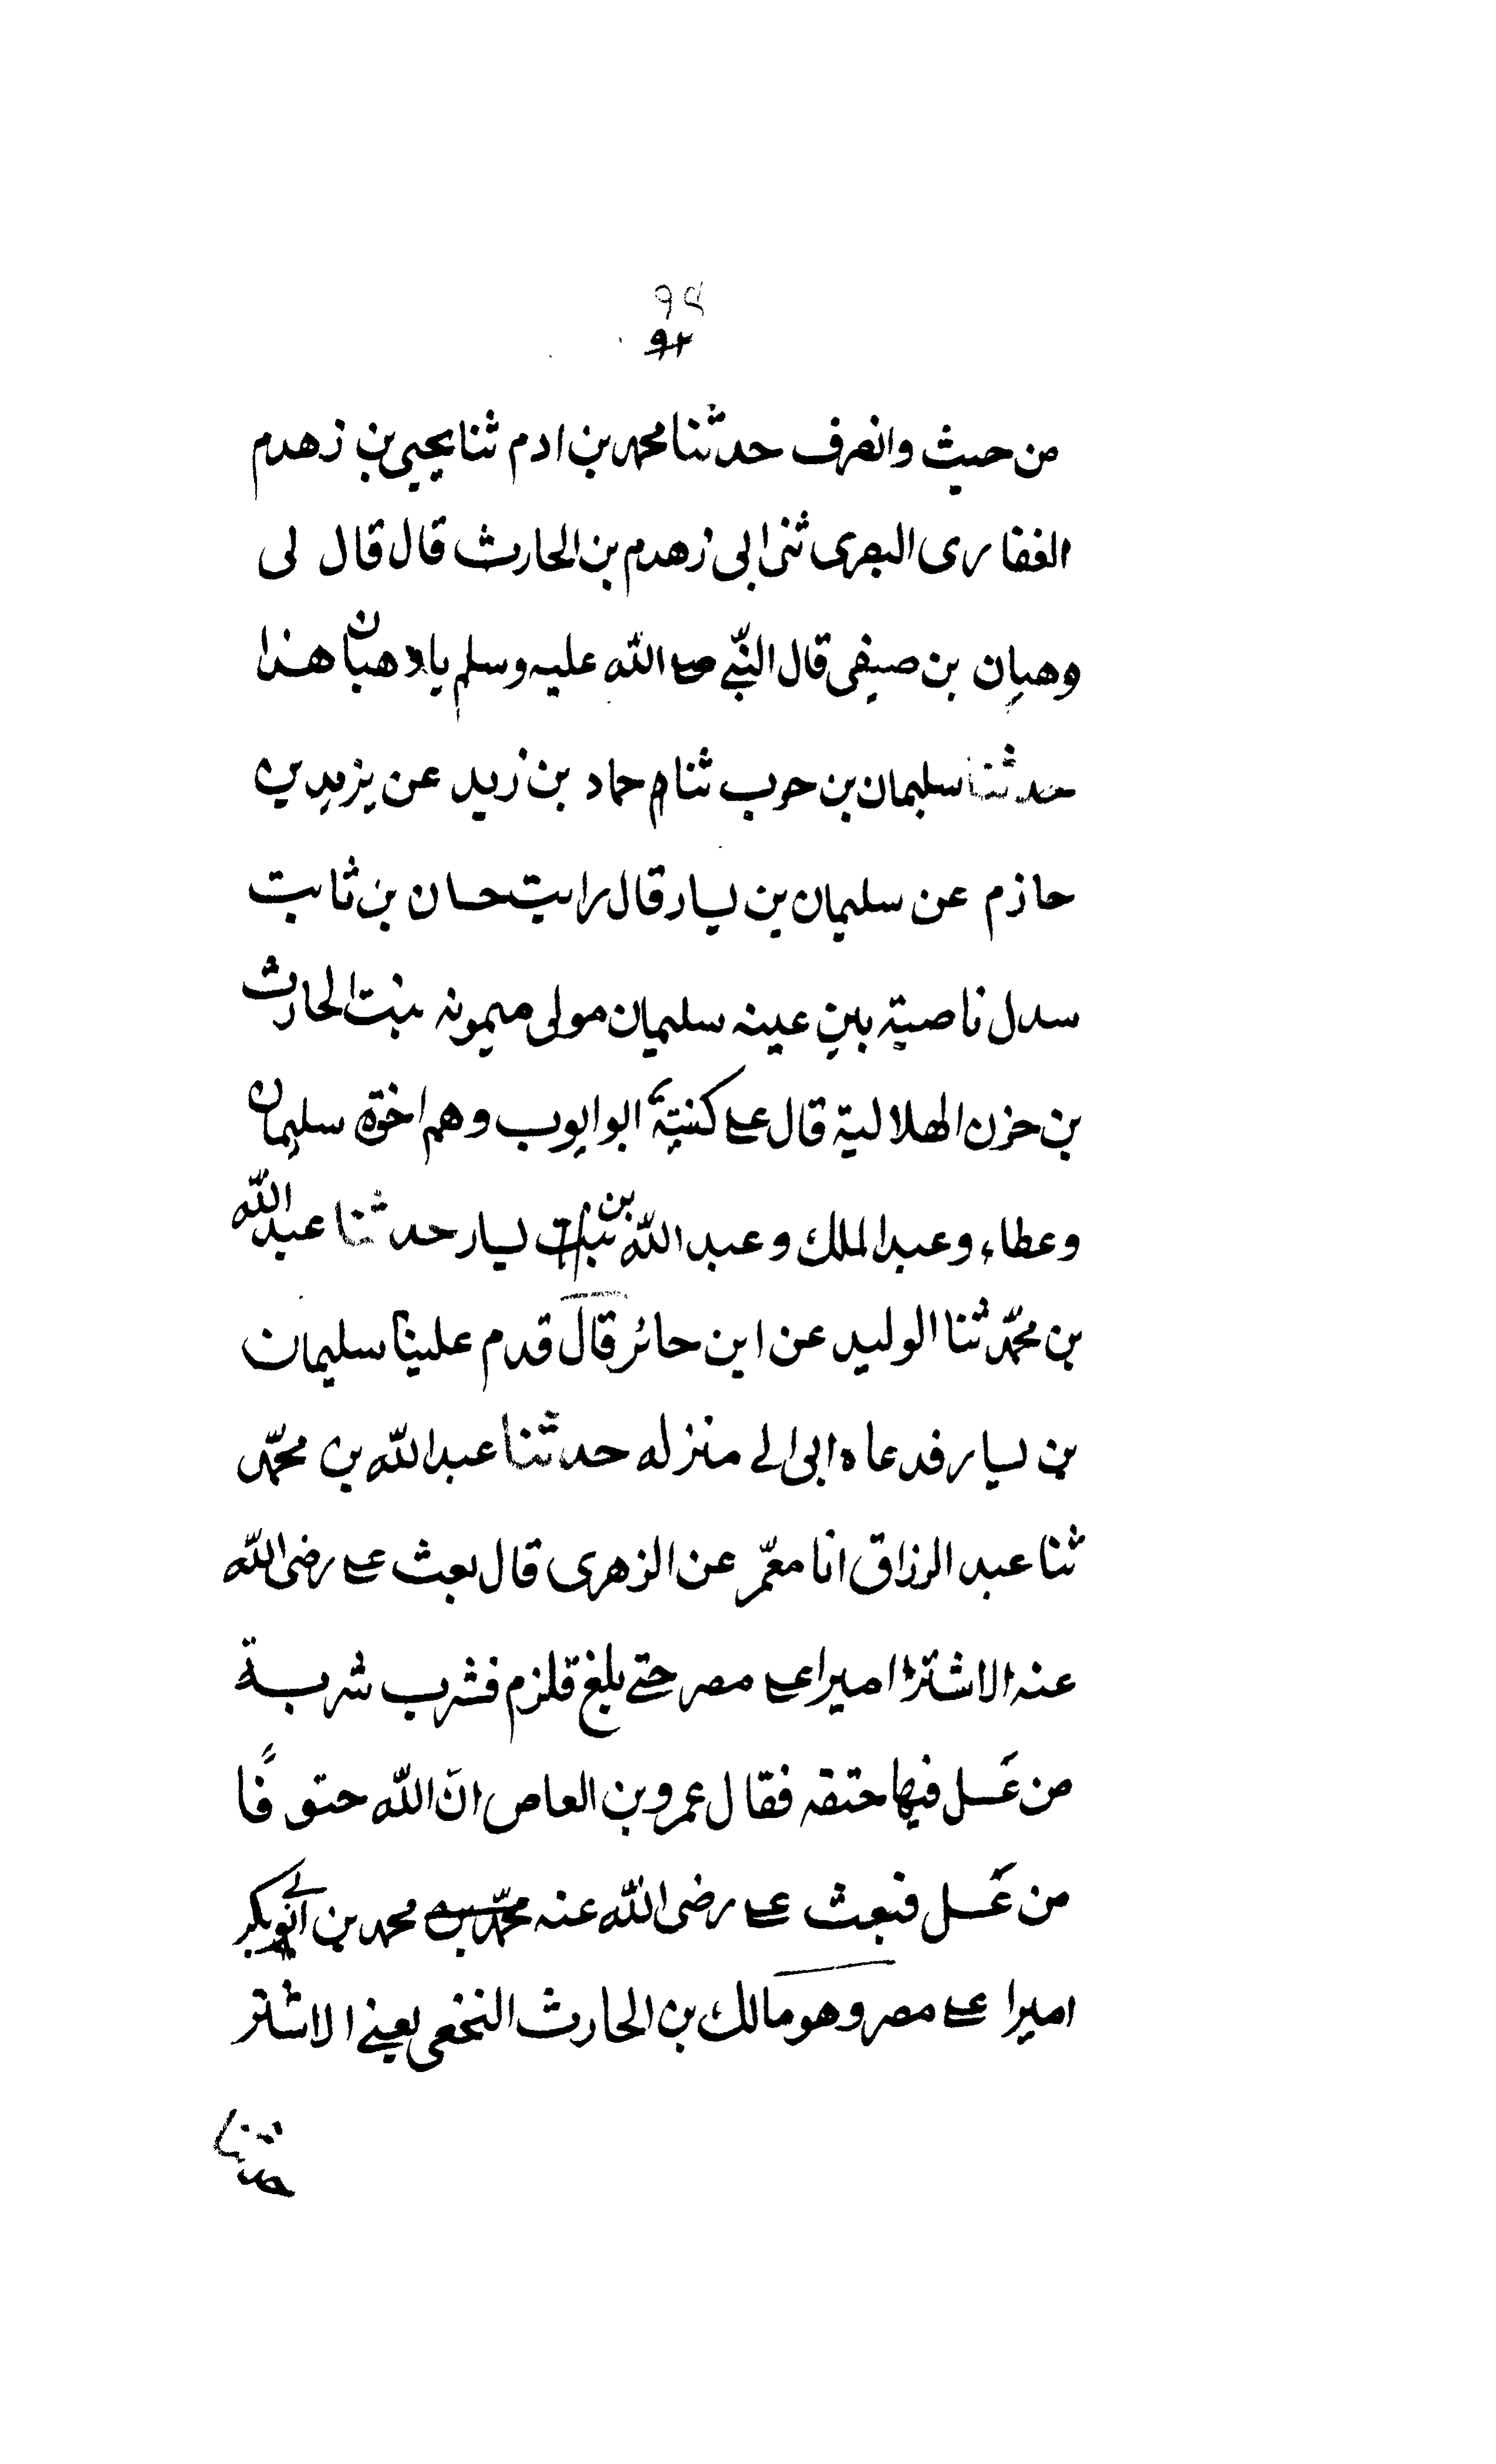 من حيث وانصرف حدثنا محمد بن ادم ثنا يحيى بن زهدم
الغفاري البصري ثنى ابى زهدم بن الحارث قال قال لى
وهبان بن صيفى قال النبى صلى الله عليه وسلم يا وهبان هذا
حدثنا سليمان بن حرب ثنا حماد بن زيد عن يزيد بن
حازم عن سليمان بن يسار قال رايت حسان بن ثابت
سدل ناصيته بين عينه سليمان مولى ميمونه بنت الحارث
بن حزن الهلالية قال على كنيته ابو ايوب وهم اخوة سليمان
وعطاء وعبد الملك وعبد الله بن يسار حدثنا عبد الله
بن محمّد ثنا الوليد عن ابن جابر قال قدم علينا سليمان
بن يسار فدعاه ابى الى منزله حدثنا عبد الله بن محمّد
ثنا عبد الرزاق انا معمّر عن الزهرى قال بعث على رضى الله
عنه الاشتر اميرا على مصر حتى بلغ قلزم فشرب شربة
من عَسل فيها حتفه فقال عمرو بن العاص انّ الله حتوفًا
من عَسل فبعث على رضى الله عنه محمد بن ابى بكر
اميرا على مصر وهو مالك بن الحارث النخعى يعنى الاشتر
حدثنا